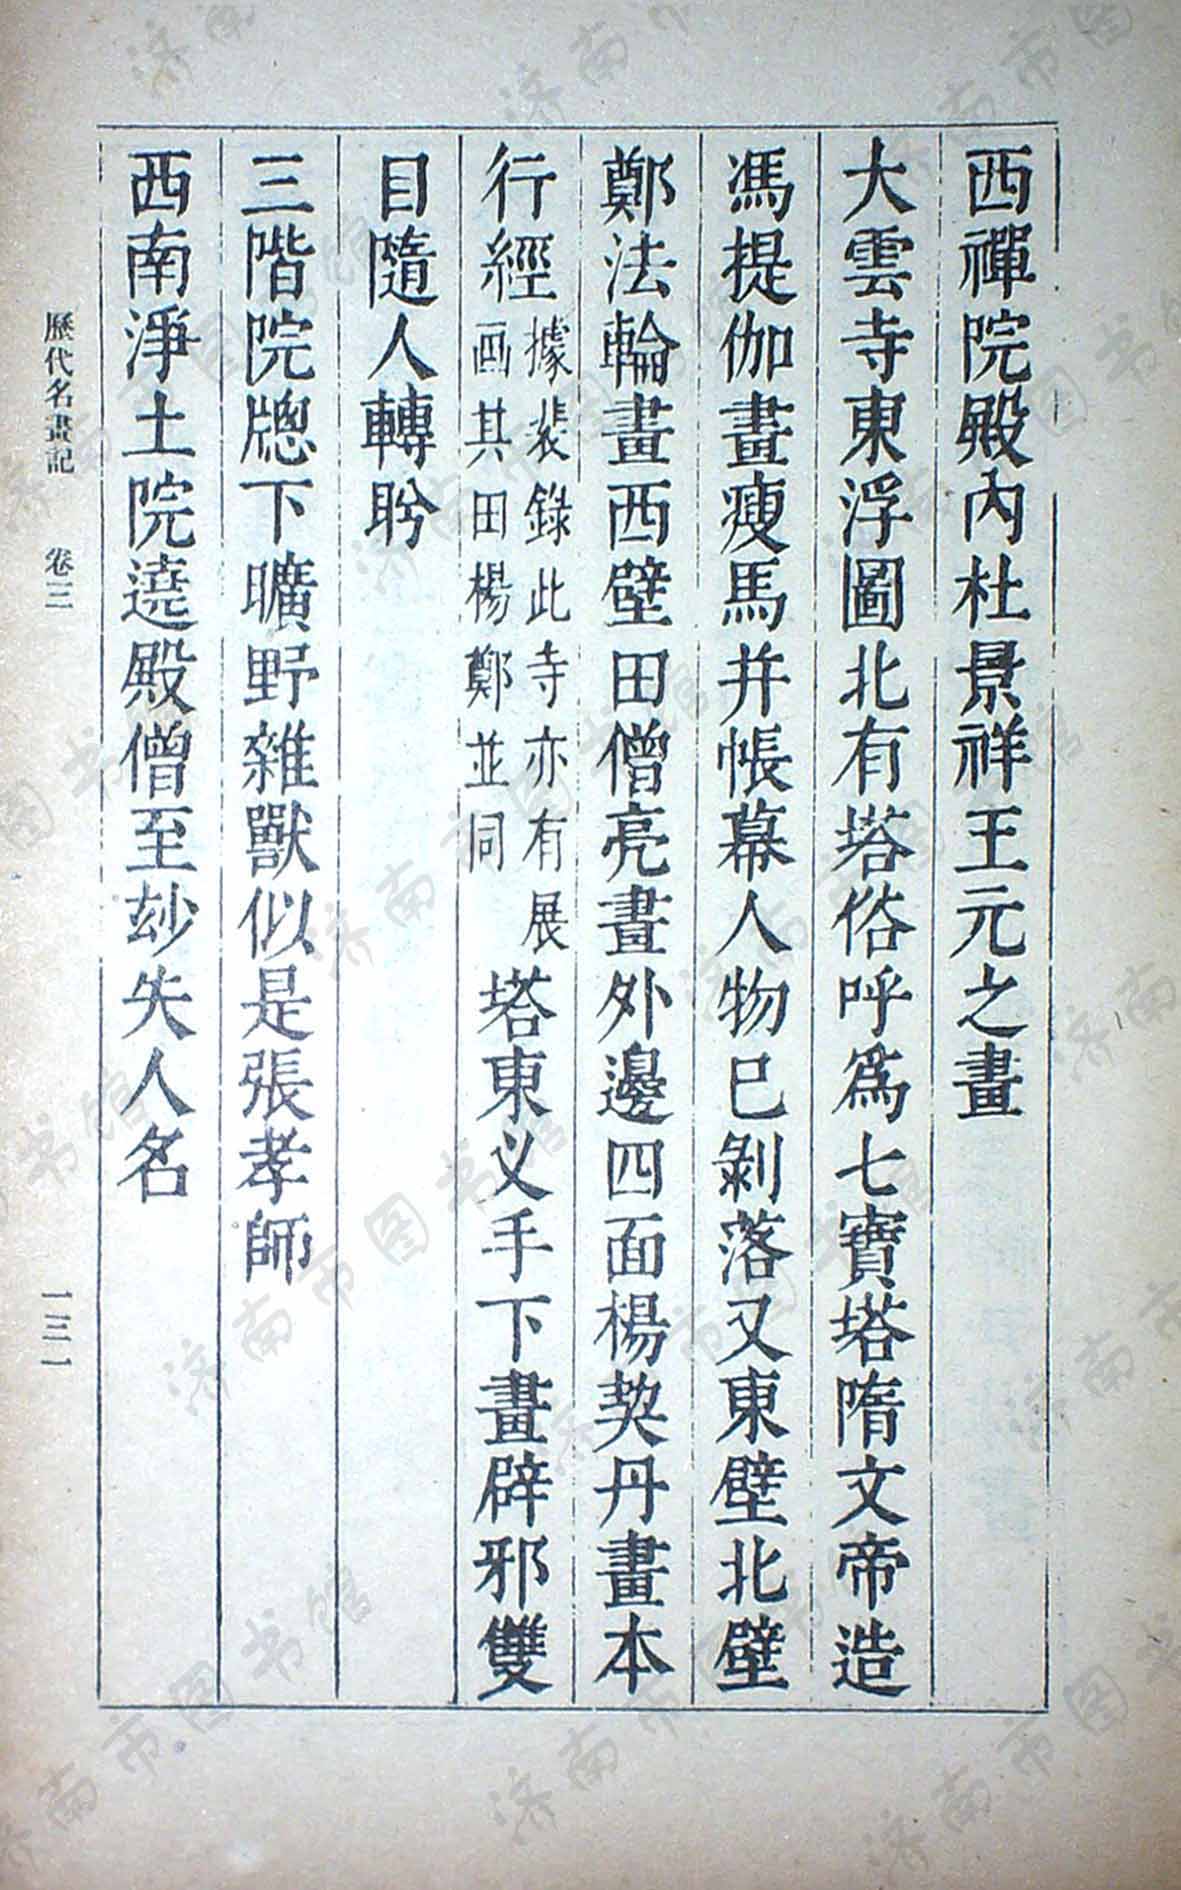 西禪院殿內杜景祥王元之畫
大雲寺東浮圖北有塔俗呼爲七寶塔隋文帝造
馮提伽畫瘦馬并帳幕人物已剝落又東壁北壁
鄭法輪畫西壁田僧亮畫外邊四面楊契丹畫本
行經據裴錄此寺亦有展画其田楊鄭並同塔東义手下畫辟邪雙
目隨人轉盻
三階院牕下曠野雜獸似是張孝師
西南淨土院遶殿僧至玅失人名
歷代名畫記 卷三 一三一
济南市图书馆